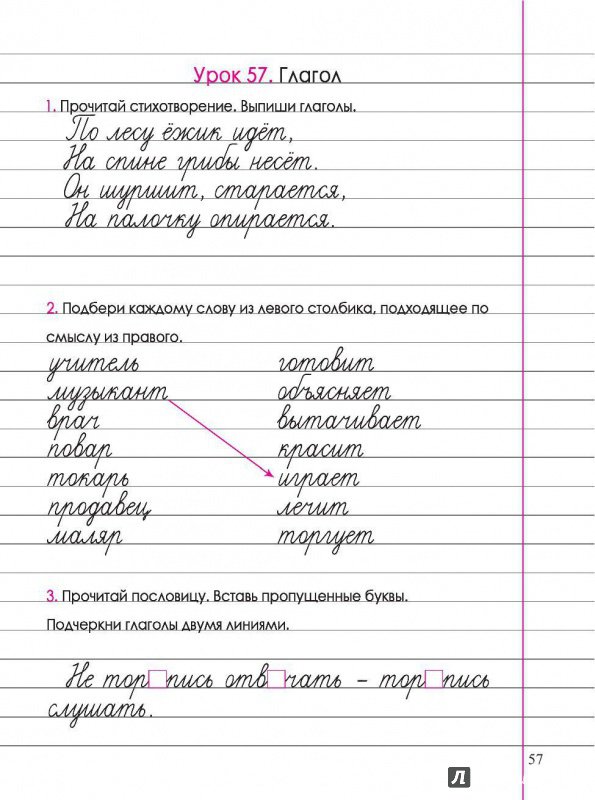 Урок 57. Глагол
1. Прочитай стихотворение. Выпиши глаголы.
По лесу ёжик идёт,
На спине грибы несёт.
Он шуршит, старается,
На палочку опирается.
2. Подбери каждому слову из левого столбика, подходящее по
смыслу из правого.
учитель готовит
музыкант объясняет
врач вытачивает
повар красит
токарь играет
продавец лечит
маляр торгует
3. Прочитай пословицу. Вставь пропущенные буквы.
Подчеркни глаголы двумя линиями.
Не тор□пись отв□чать – тор□пись
слушать.
57
Л